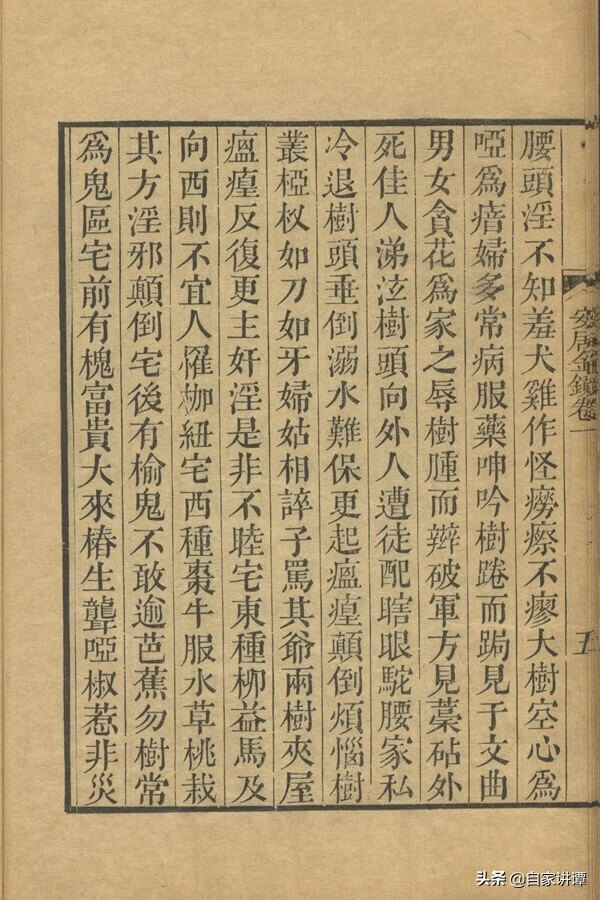 安居金鏡卷一
五
腰頭淫不知羞犬雞作怪癆瘵不瘳大樹空心爲
啞爲瘖婦多常病服藥呻吟樹踡而跼見于文曲
男女貪花爲家之辱樹腫而辮破軍方見藁砧外
死佳人涕泣樹頭向外人遭徒配瞎眼駝腰家私
冷退樹頭垂倒溺水難保更起瘟㾮顛倒煩惱樹
叢椏杈如刀如牙婦姑相誶子罵其爺兩樹夾屋
瘟㾮反復更主奸淫是非不睦宅東種柳益馬及
向西則不宜人罹枷紐宅西種棗牛服水草桃栽
其方淫邪顛倒宅後有榆鬼不敢逾芭蕉勿樹常
爲鬼區宅前有槐富貴大來椿生聾啞椒惹非災
头条 @自家讲谭